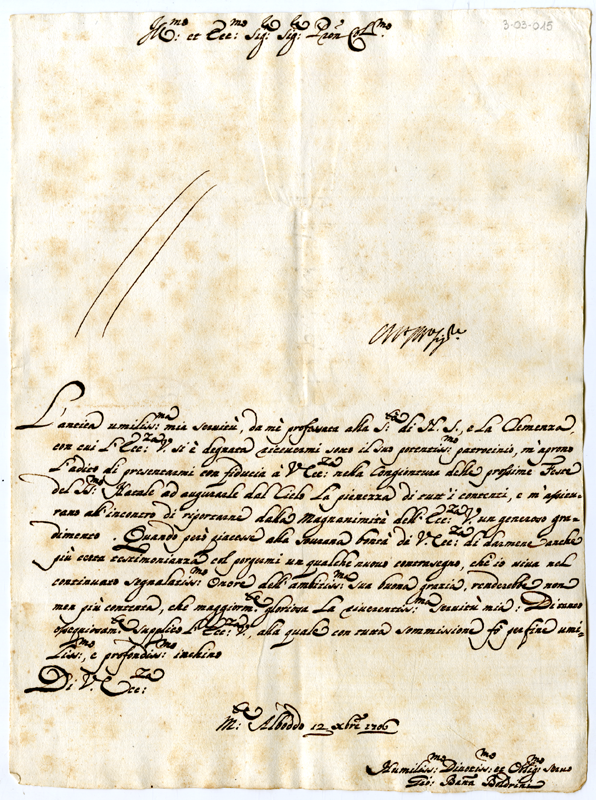 3-03-015
Ill:mo et Ecc:mo Sig: Sig: Pron Col:mo
L'antica umiliss:ma mia servitù, da mè professata alla S:ta di N. S., e La Clemenza
con cui l'Ecc:za V. si è degnata ricevermi sotto il suo potentiss:mo patrocinio, m'aprono
l'adito di presentarmi con fiducia à V. Ecc:za nella Congiuntura delle prossime Feste
del SS:mo Natale ad augurale dal Cielo La pienezza di tutt'i contenti, e m'assicu-
rano all'incontro di riportarne dalla Magnanimità dell'Ecc:za V. un generoso gra-
dimento. Quando però piacesse alla sovrana bontà de V. Ecc:za di darmene anche
più certa testimonianza col porgermi un qualche nuovo contrasegno, ch'io viva nel
continuato segnalatiss:mo Onore dell'ambitiss:ma Sua buona grazia, renderebbe non
men più contenta, che maggiorm:te gloriosa La riverentiss:ma servitù mia: Di tanto
ossequiosam:te supplico l'Ecc:za V., alla quale con tutta sommissione fò per fine umi-
liss:mo, e profondiss:mo inchino
Di V. Ecc:za
M:te Alboddo 12 Xbre 1706
Humiliss:mo Divotiss:mo et Oblig:mo Servo
Gio: Batta